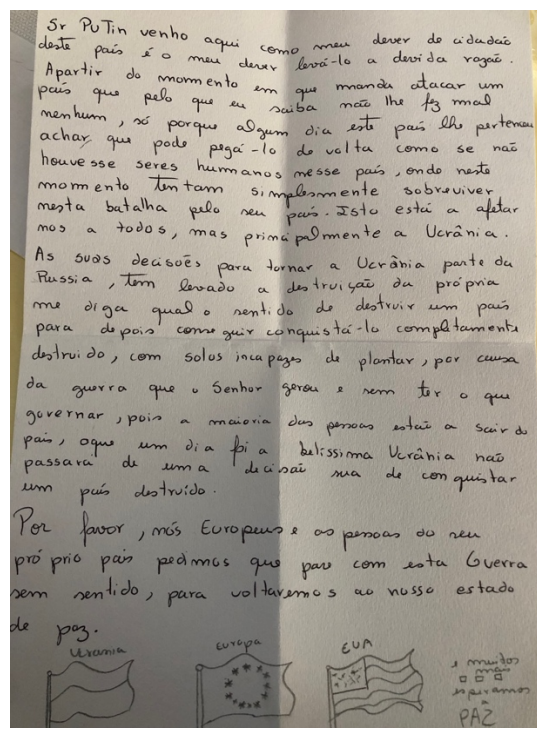 Sr Putin venho aqui como meu dever de cidadão
deste país é o meu dever levá-lo a devida razão.
Apartir do mommento em que manda atacar um
país que pelo que eu saiba não lhe fez mal
nenhum, só porque algum dia este país lhe pertenceu
achar que pode pegá-lo de volta como se não
houvesse seres humanos nesse país, onde neste
mommento tentam simplesmente sobreviver
nesta batalha pelo seu país. Isto está a afetar
nos a todos, mas principalmente a Ucrânia.
As suas decisões para tornar a Ucrânia parte da
Russia, tem levado a destruição da própria
me diga qual o sentido de destruir um país
para depois conseguir conquistá-lo completamente
destruido, com solos incapazes de plantar, por causa
da guerra que o Senhor gerou e sem ter o que
governar, pois a maioria das pessoas estão a sair do
país, oque um dia foi a belissima Ucrânia não
passará de uma decisão sua de conquistar
um país destruído.
Por favor, nós Europeus e as pessoas do seu
próprio país pedimos que pare com esta Guerra
sem sentido, para voltaremos ao nosso estado
de paz.
Ucrania Europa EUA
e muitos
mais
espiramos
à
PAZ